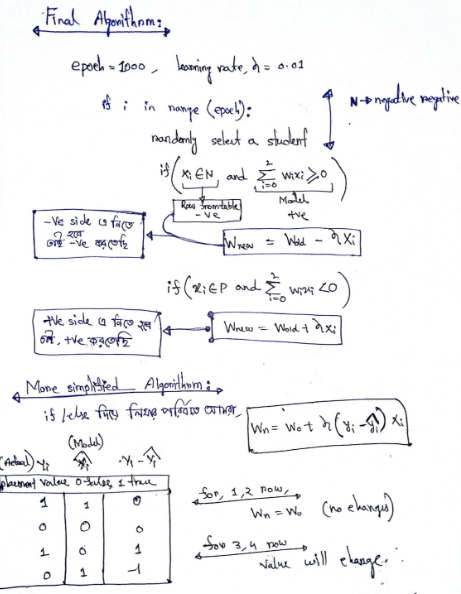 Final Algorithm:
epoch = 1000, learning rate, η = 0.01
for i in range (epoch):
N → negative negative
randomly select a student
if (xi ∈ N and Σ_{i=0}^{2} wixi ≥ 0)
Row from table
-ve
Model
+ve
-ve side এ নিতে
হবে
তাই -ve করতেছি
Wnew = Wold - ηxi
if (xi ∈ P and Σ_{i=0}^{2} wixi < 0)
+ve side এ নিতে হবে
তাই, +ve করতেছি
Wnew = Wold + ηxi
More simplified Algorithm:
if/else দিয়ে লিখার পরিবর্তে আমরা,
Wn = Wo + η(yi - ŷi) xi
(Model)
(Actual) yi ŷi yi - ŷi
placement value 0 false, 1 true
1 1 0
0 0 0
1 0 1
0 1 -1
for, 1,2 row,
Wn = Wo (no changes)
for 3,4 row
value will change.